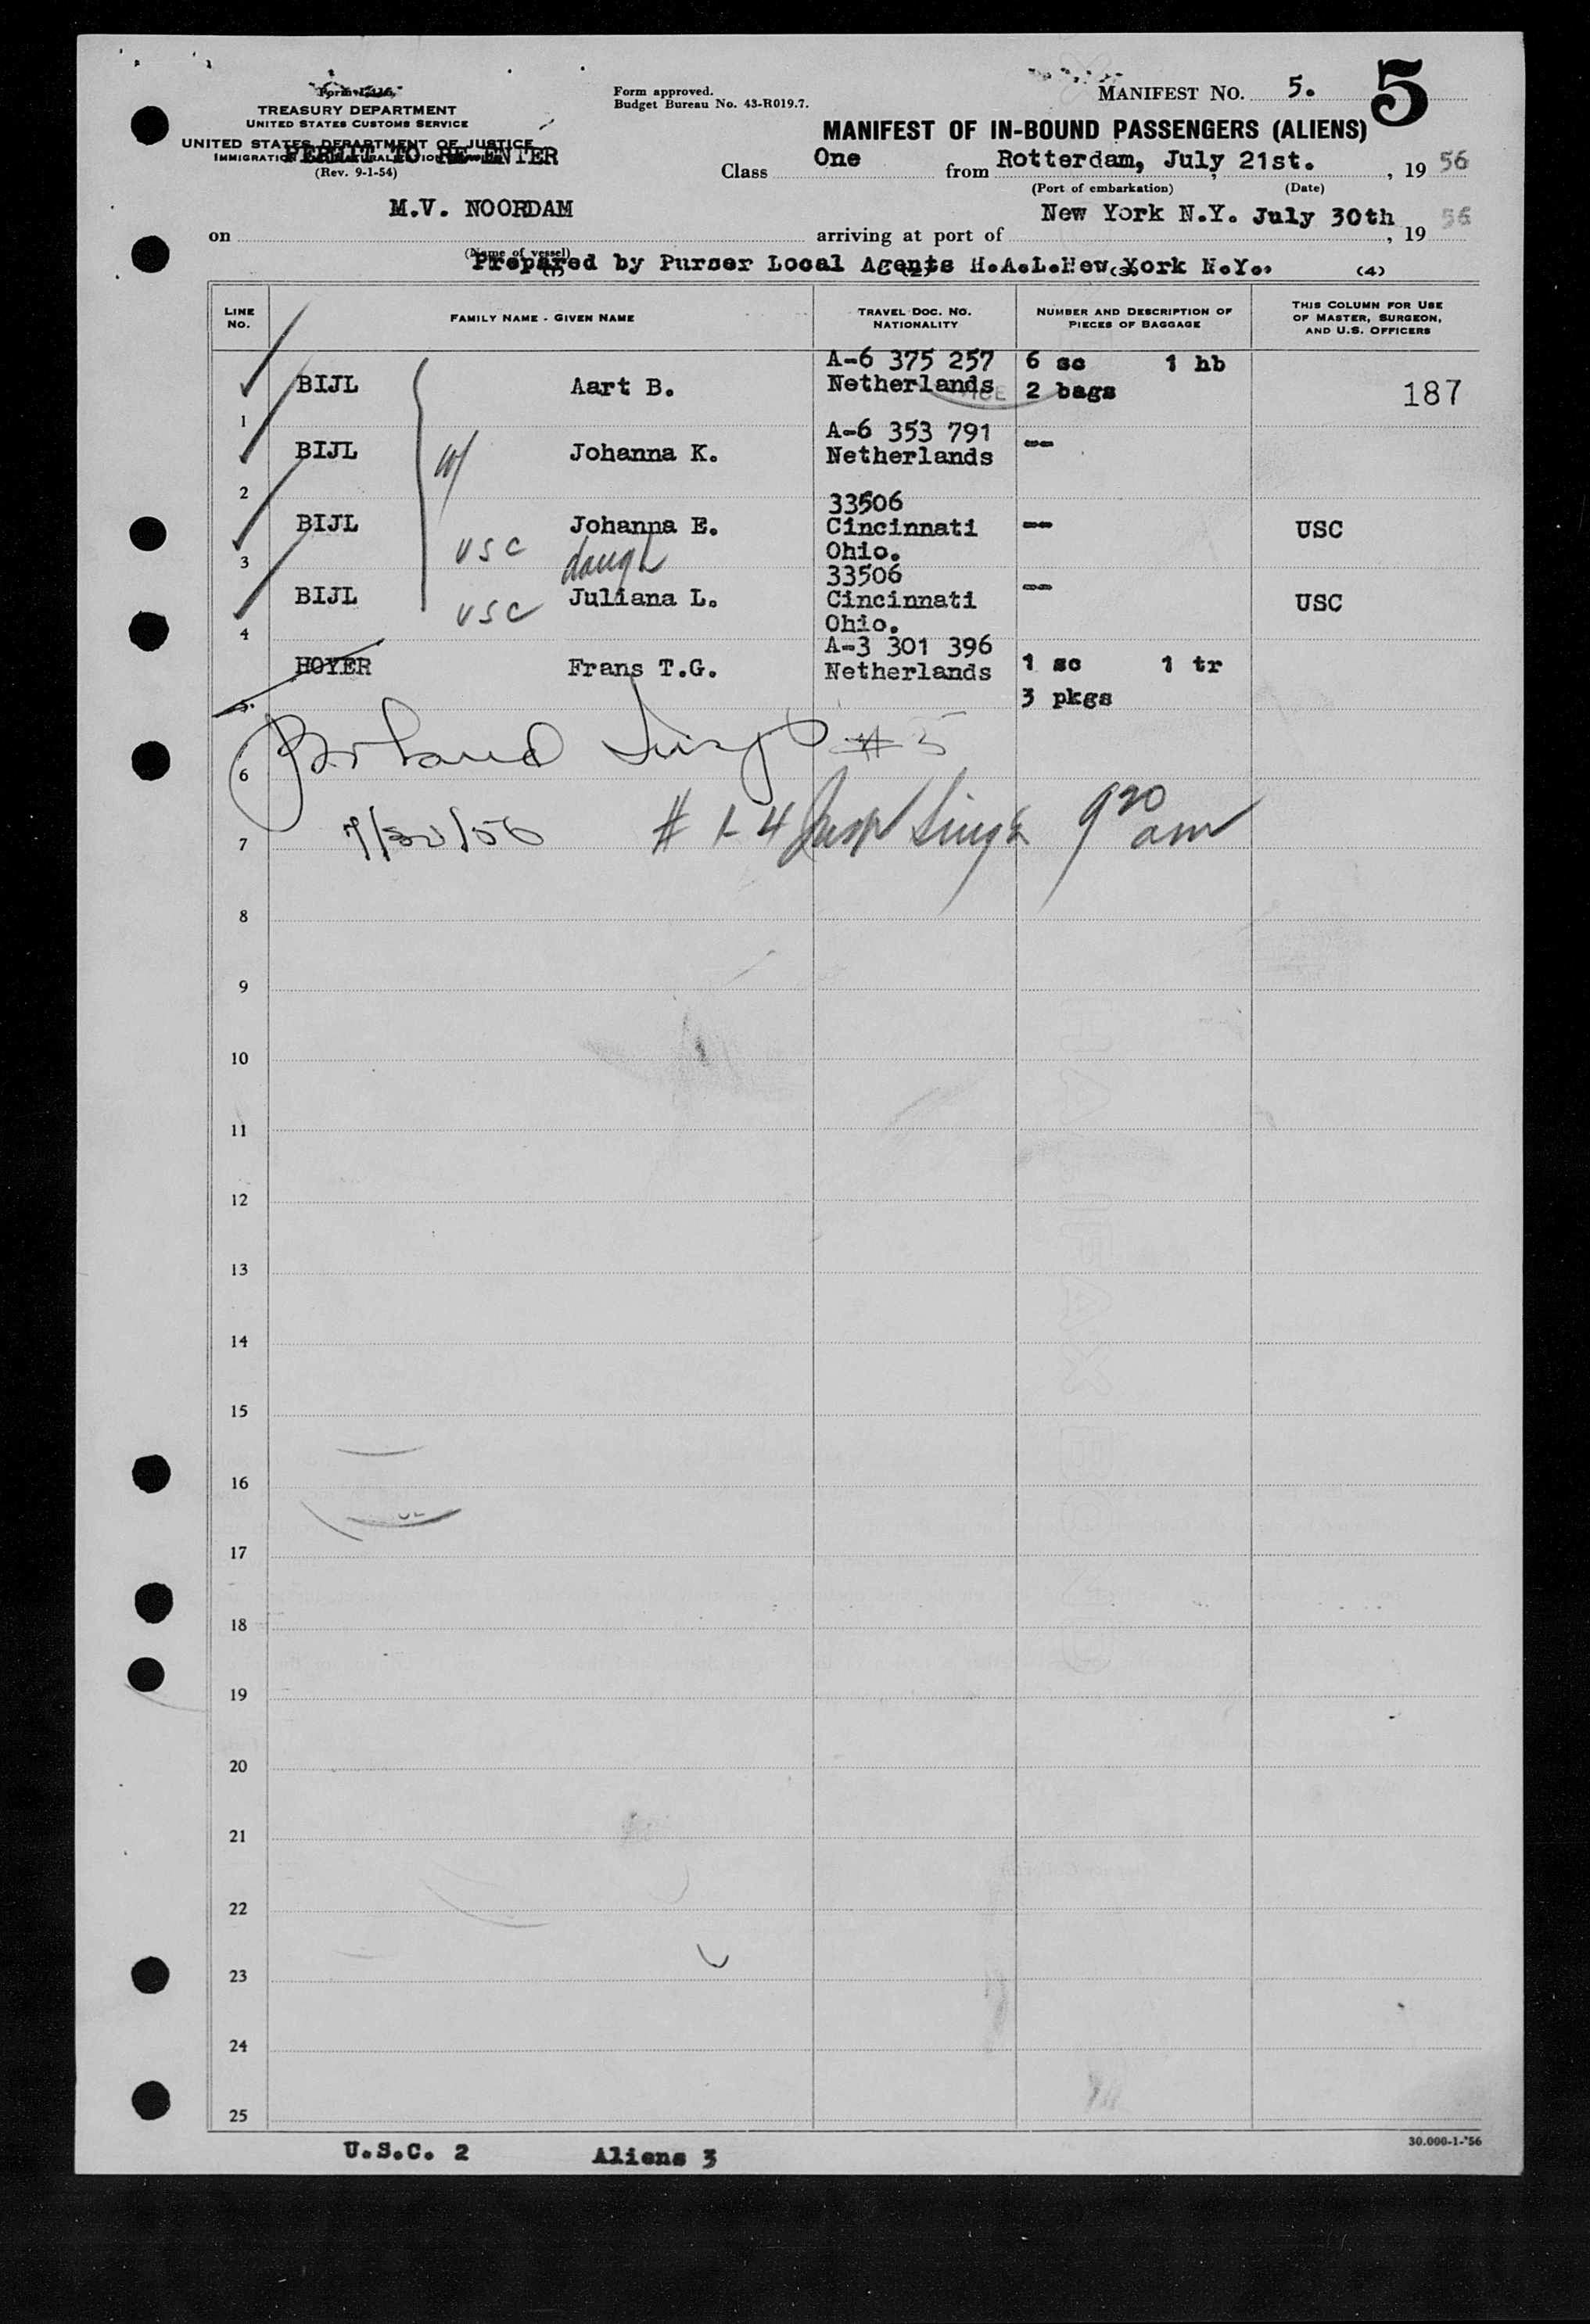 Form I-416
TREASURY DEPARTMENT
UNITED STATES CUSTOMS SERVICE
UNITED STATES DEPARTMENT OF JUSTICE
PERMIT TO RE ENTER
(Rev. 9-1-54)
Form approved.
Budget Bureau No. 43-R019.7.
MANIFEST NO. 5. 5
MANIFEST OF IN-BOUND PASSENGERS (ALIENS)
Class One from Rotterdam, July 21st., 19 56
(Port of embarkation) (Date)
M.V. NOORDAM New York N.Y. July 30th 56
on arriving at port of , 19
(Name of vessel)
Prepared by Purser Local Agents H.A.L. New York N.Y.
(1) (2) (3) (4)
LINE NO. FAMILY NAME - GIVEN NAME TRAVEL DOC. NO. NATIONALITY NUMBER AND DESCRIPTION OF PIECES OF BAGGAGE THIS COLUMN FOR USE OF MASTER, SURGEON, AND U.S. OFFICERS
A-6 375 257 6 sc 1 hb
BIJL Aart B. Netherlands 2 bags 187
1
A-6 353 791
BIJL w/ Johanna K. Netherlands --
2
33506
BIJL Johanna E. Cincinnati -- USC
USC daugh Ohio.
3
33506
BIJL Juliana L. Cincinnati -- USC
USC Ohio.
4
A-3 301 396
HOYER Frans T.G. Netherlands 1 sc 1 tr
5. 3 pkgs
# 5
6
7/30/56 # 1-4 Insp 9 30 am
7
8
9
10
11
12
13
14
15
16
17
18
19
20
21
22
23
24
25
U.S.C. 2 Aliens 3
30.000-1-'56